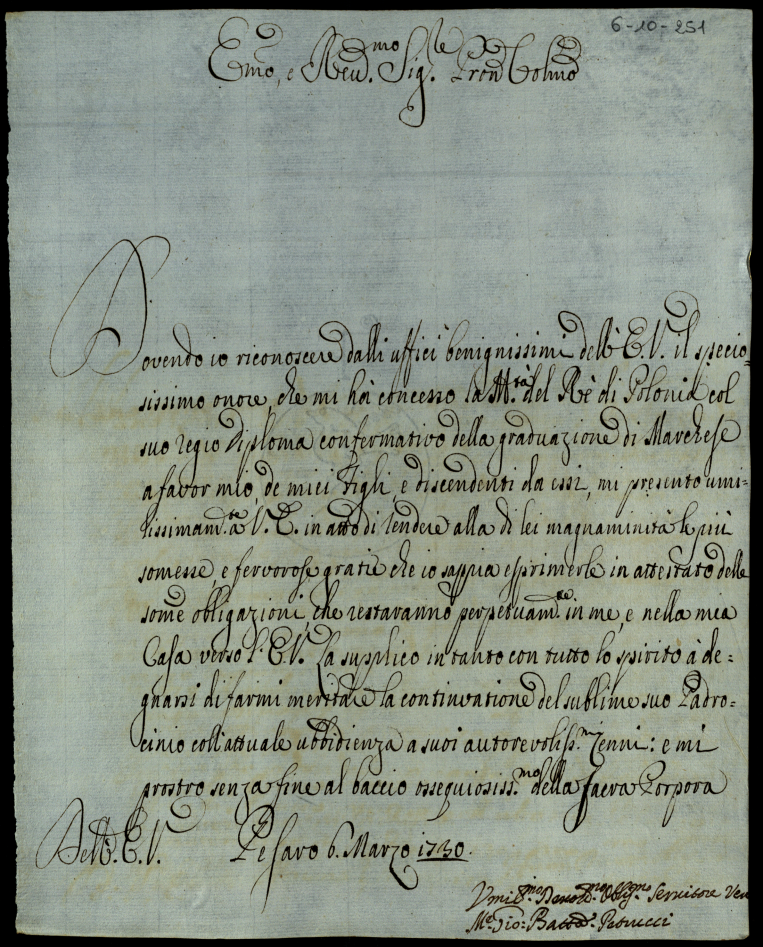 6-10-251
Emo, e Reu.mo Sig.re Pron Colmo
Dovendo io riconoscere dalli uffici benignissimi dell'E.V. il specio-
sissimo onore, che mi hà concesso la M.tà del Rè di Polonia col
suo regio diploma confermativo della graduazione di Marchese
a favor mio, de miei Figli, e discendenti da essi, mi presento umi-
lissimam.te a V.E. in atto di rendere alla di lei magnaminità le più
somesse, e fervorose gratie che io sappia esprimerle in attestato delle
some obligazioni, che restaranno perpetuam.te in me, e nella mia
Casa verso l'E.V. La supplico in tanto con tutto lo spirito à de-
gnarsi di farmi meritare la continuatione del sublime suo Padro-
cinio coll'attuale ubbidienza a suoi autorevoliss.mi Cenni: e mi
prostro senza fine al baccio ossequiosiss.mo della sacra Porpora
Dell'E.V. Pesaro 6. Marzo 1730.
Vmil.mo Deuot.mo Oblig.mo Seruitore Ven
M.e Gio: Batta. Petrucci